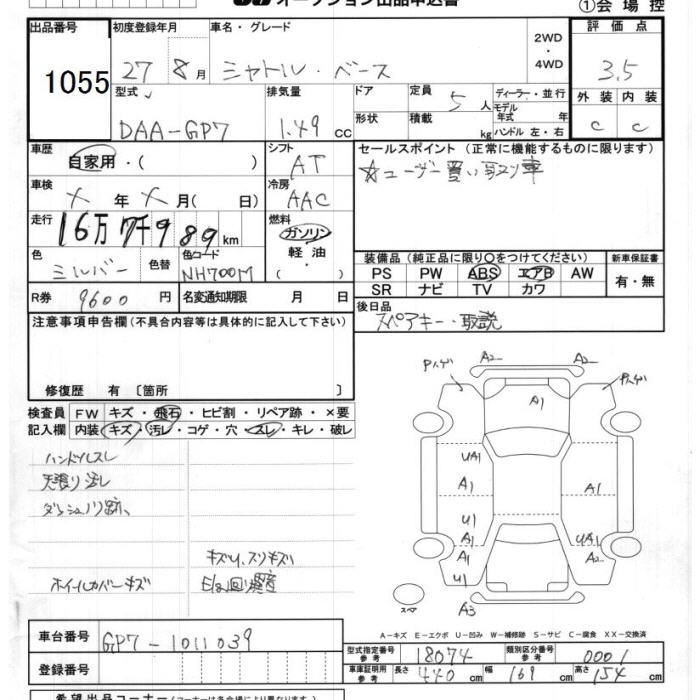 オークション出品申込書
①会場控
出品番号 初度登録年月 車名・グレード 2WD・4WD 評価点
1055 27 8月 シャトル・ベース 3.5
型式 排気量 ドア 定員 5人 ディーラー・並行 外装 内装
モデル年式 年
DAA-GP7 1.49 cc 形状 積載 kg ハンドル 左・右 C C
車歴 シフト セールスポイント(正常に機能するものに限ります)
自家用・( ) AT ☆ユーザー買い取り車
車検 冷房
メ 年 メ 月( 日) AAC
走行 燃料
16万7千989km ガソリン
軽油
( )
色 色替 色コード 装備品(純正品に限り○をつけてください) 新車保証書
シルバー NH700M PS PW ABS エアB AW 有・無
SR ナビ TV カワ
R券 9600円 名変通知期限 月 日 後日品
スペアキー・取説
注意事項申告欄(不具合内容等は具体的に記入して下さい)
修復歴 有 〔箇所 〕
検査員 FW キズ・飛石・ヒビ割・リペア跡・×要
記入欄 内装 キズ・汚レ・コゲ・穴・スレ・キレ・破レ
ハンドルスレ
天張り汚レ
ダッシュノリ跡、
キズU、スリキズ
ホイルカバーキズ
A2 A2
A1
UA1
A1 A1
U1
A1 A1 UA1
A1 A2
U1
スペア A3
A-キズ E-エクボ U-凹み W-補修跡 S-サビ C-腐食 XX-交換済
車台番号 GP7-1011039
型式指定番号 参考 18074 類別区分番号 参考 0001
登録番号 車庫証明用 参考 長さ 440cm 幅 169cm 高さ 154cm
希望出品コーナー